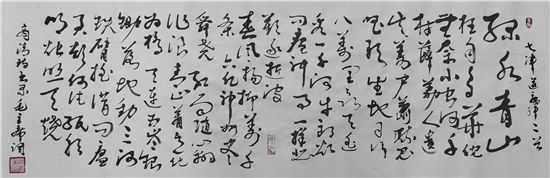 七律 送瘟神 二首
绿水青山
枉自多華佗
無奈小虫何千
村薜荔人遗
矢萬户萧疏鬼
唱歌坐地日行
八萬里巡天遥
看一千河牛郎欲
问瘟神事一样悲
歡逐逝波
春風楊柳萬千
条六亿神州尽
舜尧红雨随心翻
作浪青山着意化
为橋天连五岭银
锄落地动三河
铁臂摇借问瘟君
欲何往纸船
明烛照天烧
毛主席词